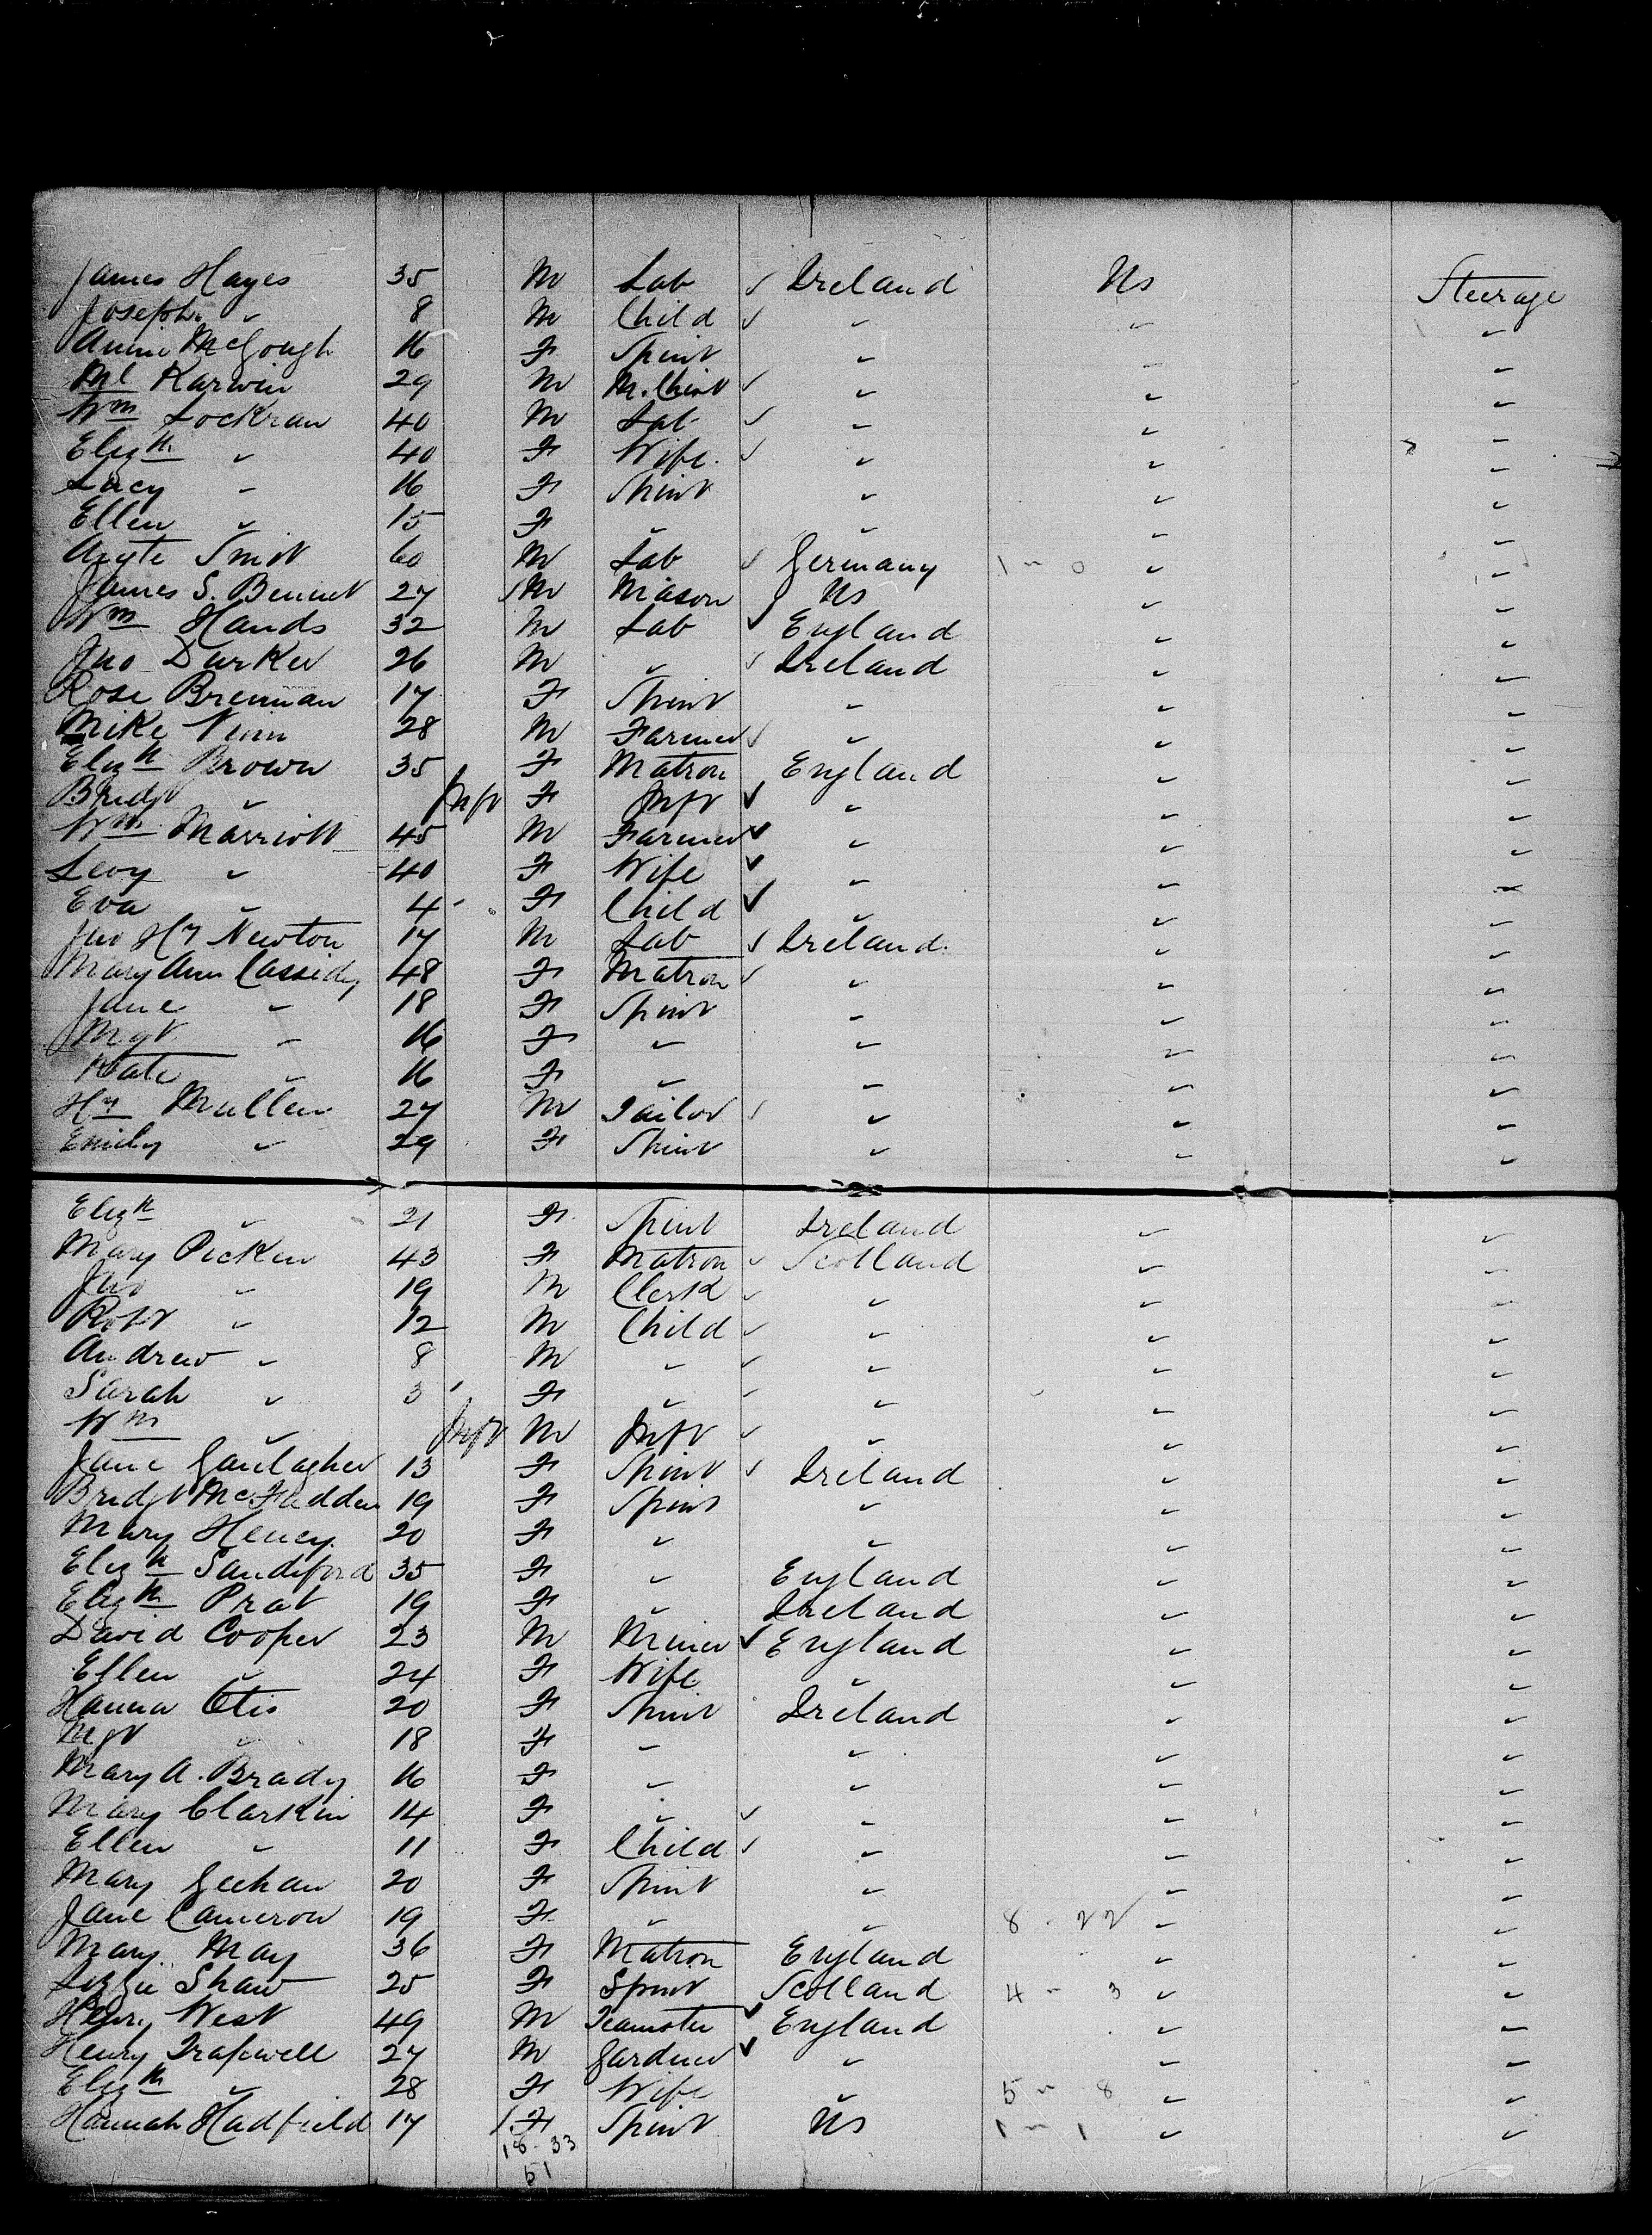 James Hayes 35 M Lab ✓ Ireland Us Steerage
Joseph " 8 M Child ✓ " " "
Annie McGough 16 F Spinr " " "
Ml Karwin 29 M M. Chint ✓ " " "
Wm Lockran 40 M Lab ✓ " " "
Elizth " 40 F Wife ✓ " " "
Lucy " 16 F Spinr " " "
Ellen " 15 F " " " "
Smit 60 M Lab ✓ Germany 1 - 0 " "
James S. Bennet 27 M Mason Us " "
Wm Hands 32 M Lab ✓ England " "
Jno Darker 26 M " ✓ Ireland " "
Rose Brennan 17 F Spinr " " "
Mike 28 M Farmer ✓ " " "
Elizth Brown 35 F Matron England " "
Bridgt " Infr F Infr ✓ " " "
Wm Marriott 45 M Farmer ✓ " " "
Levy " 40 F Wife ✓ " " "
Eva " 4 F Child ✓ " " "
Jno Hy Newton 17 M Lab ✓ Ireland " "
Mary Ann Cassidy 48 F Matron ✓ " " "
Jane " 18 F Spinr " " "
Mgt " 16 F " " " "
Kate " 16 F " " " "
Hy Mullen 27 M Tailor ✓ " " "
Emily " 29 F Spinr " " "
Elizth " 21 F Spinr Ireland " "
Mary Picken 43 F Matron ✓ Scotland " "
Jno " 19 M Clerk ✓ " " "
Robt " 12 M Child ✓ " " "
Andrew " 8 M " ✓ " " "
Sarah " 3 F " ✓ " " "
Wm " Infr M Infr ✓ " " "
Jane Gaulagher 13 F Spinr ✓ Ireland " "
Bridgt McFadden 19 F Spinr " " "
Mary Heney 20 F " " " "
Elizth Sandiford 35 F " England " "
Elizth Prat 19 F " Ireland " "
David Cooper 23 M Miner ✓ England " "
Ellen " 24 F Wife " " "
Hanna Otis 20 F Spinr Ireland " "
Mgt " 18 F " " " "
Mary A. Brady 16 F " " " "
Mary Clarkin 14 F " ✓ " " "
Ellen " 11 F Child ✓ " " "
Mary Geehan 20 F Spinr " " "
Jane Cameron 19 F " " 8 - 22 " "
Mary May 36 F Matron England " "
Lizzie Shaw 25 F Spinr Scotland 4 - 3 " "
Henry West 49 M Teamster ✓ England " "
Henry Trapwell 27 M Gardner ✓ " " "
Elizth " 28 F Wife " 5 - 8 " "
Hannah Hadfield 17 F Spinr Us 1 - 1 " "
18 - 33
51